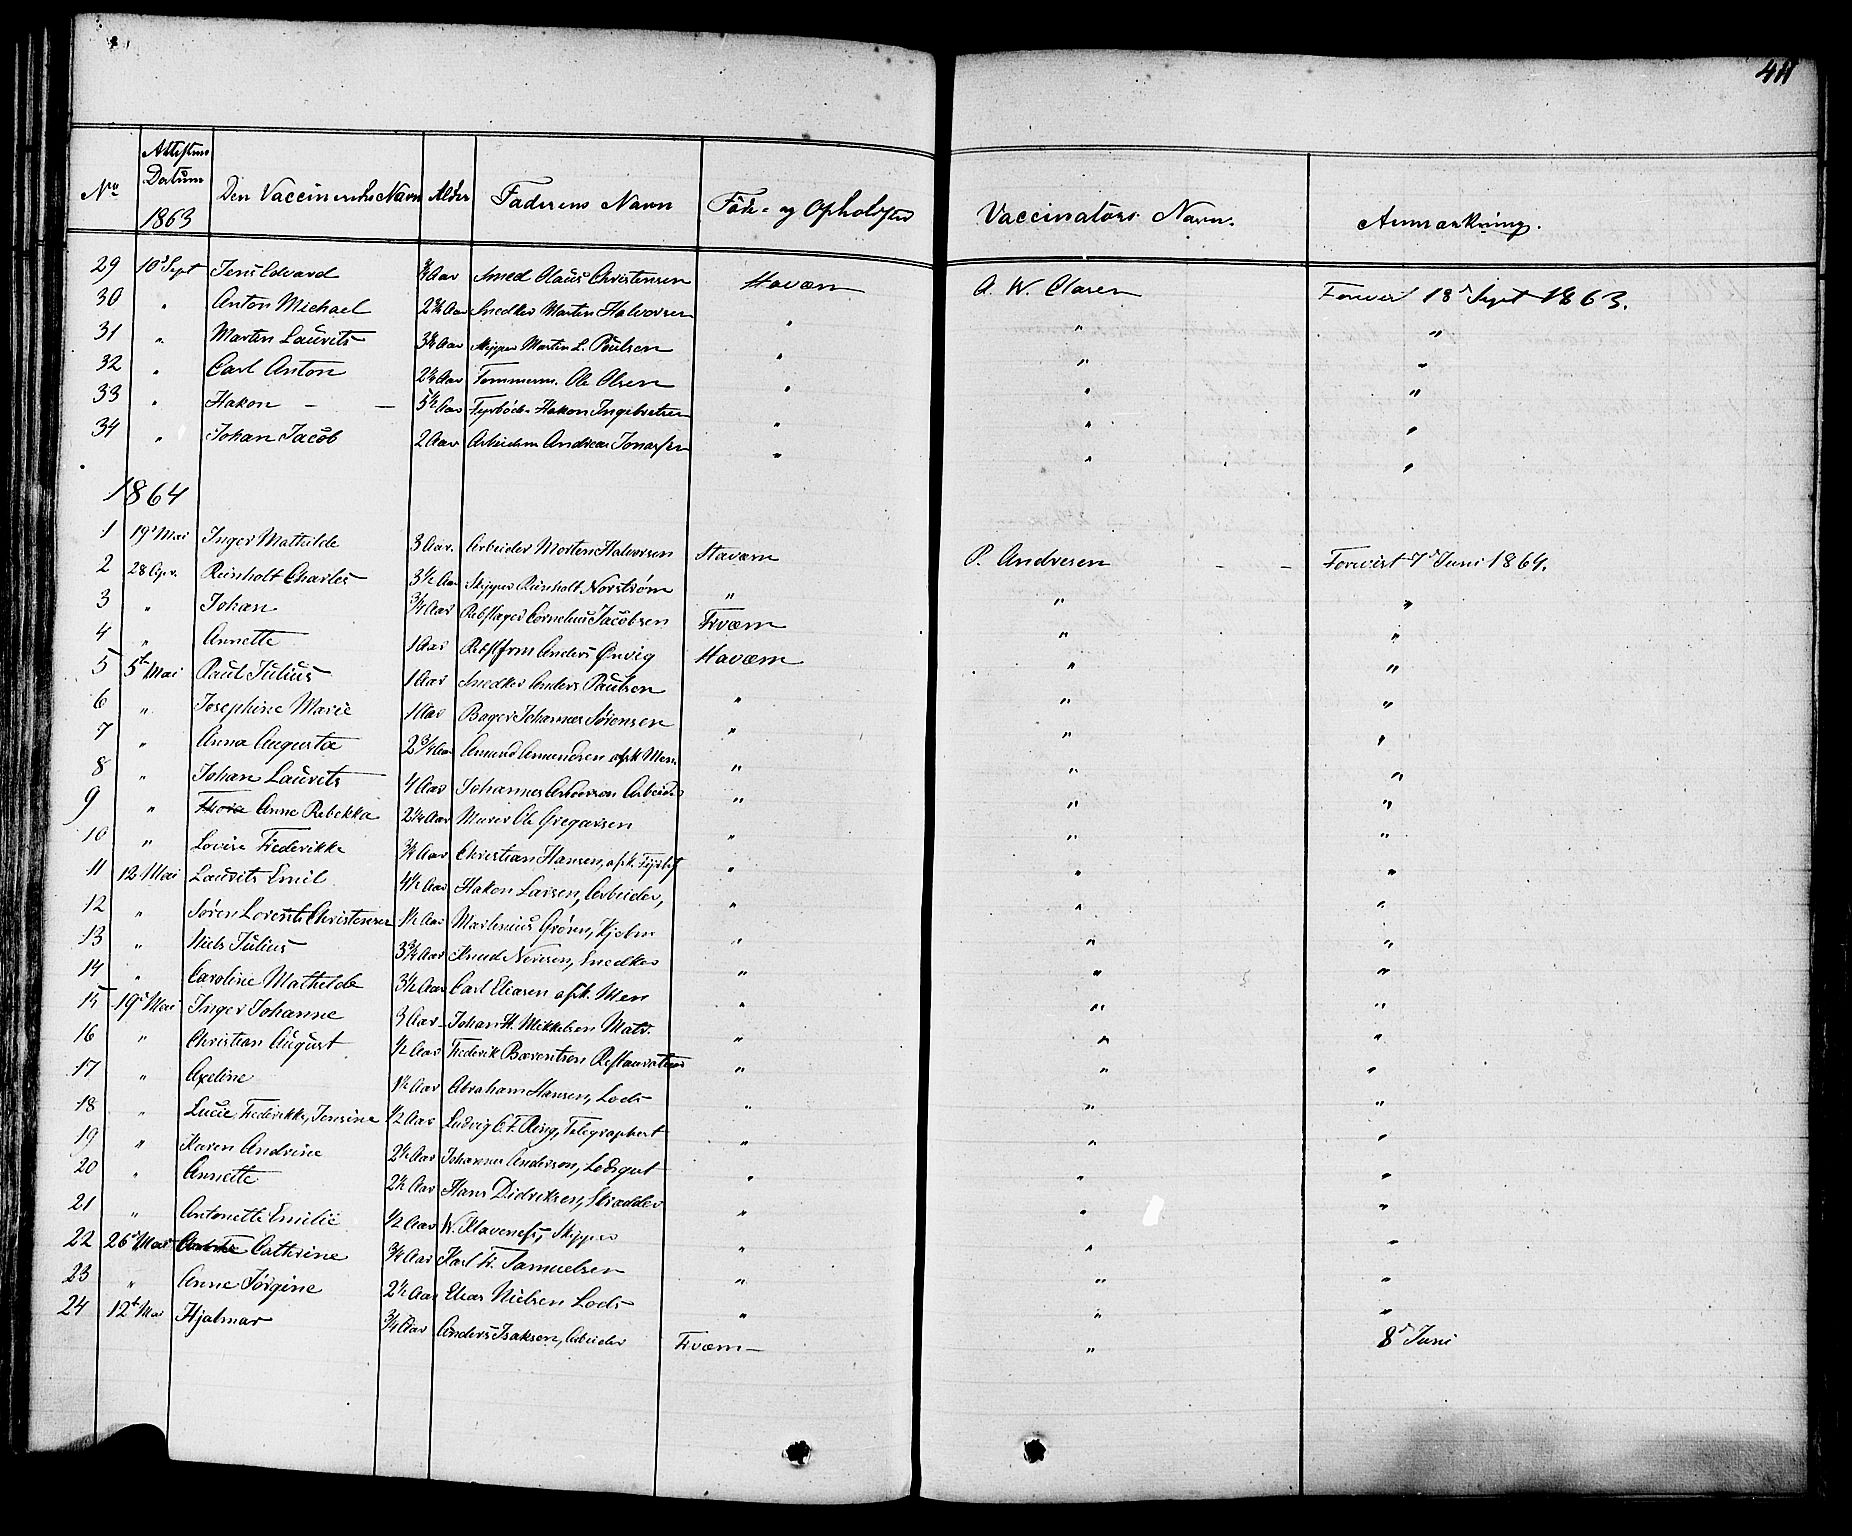 44
No Attestens Datum 1863 Den Vaccinerendes Navn Alder Faderens Navn Føde- og Opholdsted Vaccinators Navn. Anmærkning.
29 10d Sept Jens Edvard ¾ Aar Smed Olaus Christensen Staværn A. W. Clasen Forevist 18d Sept 1863.
30 " Anton Michael 2½ Aar Snedker Martin Halvorsen " " "
31 " Martin Laurits 3½ Aar Skipper Martin L. Poulsen " " "
32 " Carl Anton 2½ Aar Tømmerm. Ole Olsen " " "
33 " Hakon – – 5½ Aar Fyrbøder Hakon Ingebretsen " " "
34 " Johan Jacob 2 Aar Arbeidsm Andreas Jonassen " " "
1864
1 19d Mai Inger Mathilde 3 Aar. Arbeider Morten Halvorsen Staværn P. Andresen – – Forevist 7d Juni 1864.
2 28 Apr. Reinholt Charles 3½ Aar Skipper Reinholt Norstrøm " " "
3 " Johan ¾ Aar Rebslager Cornelius Jacobsen Fr.værn " "
4 " Annette 1 Aar Anders Ønvig Staværn " "
5 5te Mai Paul Julius 1 Aar Snedker Anders Paulsen " " "
6 " Josephine Marie 1 Aar Bager Johannes Sørensen " " "
7 " Anna Augusta 2¾ Aar Amund Amundsen afsk. Men " " "
8 " Johan Laurits 4 Aar Johannes Anderson Arbeider " " "
9 " Thora Anne Rebekka 2½ Aar Murer Ole Gregarsen " " "
10 " Lovise Frederikke ¾ Aar Christian Hansen, afsk. " " "
11 12 Mai Laurits Emil 4½ Aar Hakon Larsen, Arbeider, " " "
12 " Søren Lorents Christensen 1½ Aar Martinius Grøren, " " "
13 " Niels Julius 3¾ Aar Knud Neresen, Snedker " " "
14 " Caroline Mathilde 3½ Aar Carl Eliasen afsk. Men " " "
15 19d Mai Inger Johanne 3 Aar Johan H. Mikkelsen Matr. " " "
16 " Christian August ½ Aar Frederik Barentsen Restaurateur " " "
17 " Axeline 1½ Aar Abraham Hansen, Lods " " "
18 " Lucie Frederikke, Jensine ½ Aar Ludvig C. F. Ring, Telegraphert " " "
19 " Karen Andrine 2½ Aar Johannes Anderson, Lodsgut " " "
20 " Annette 2½ Aar Hans Didriksen, Skrædder " " "
21 " Antonette Emilie ½ Aar W. Klaveness, Skipper " " "
22 26d Mai Cathrine ¾ Aar Karl Fr. Samuelsen " " "
23 " Anne Jørgine 2½ Aar Elias Nielsen Lods " " "
24 12te Mai Hjalmar ¾ Aar Anders Isaksen, Arbeider Fr.værn – " 8d Juni